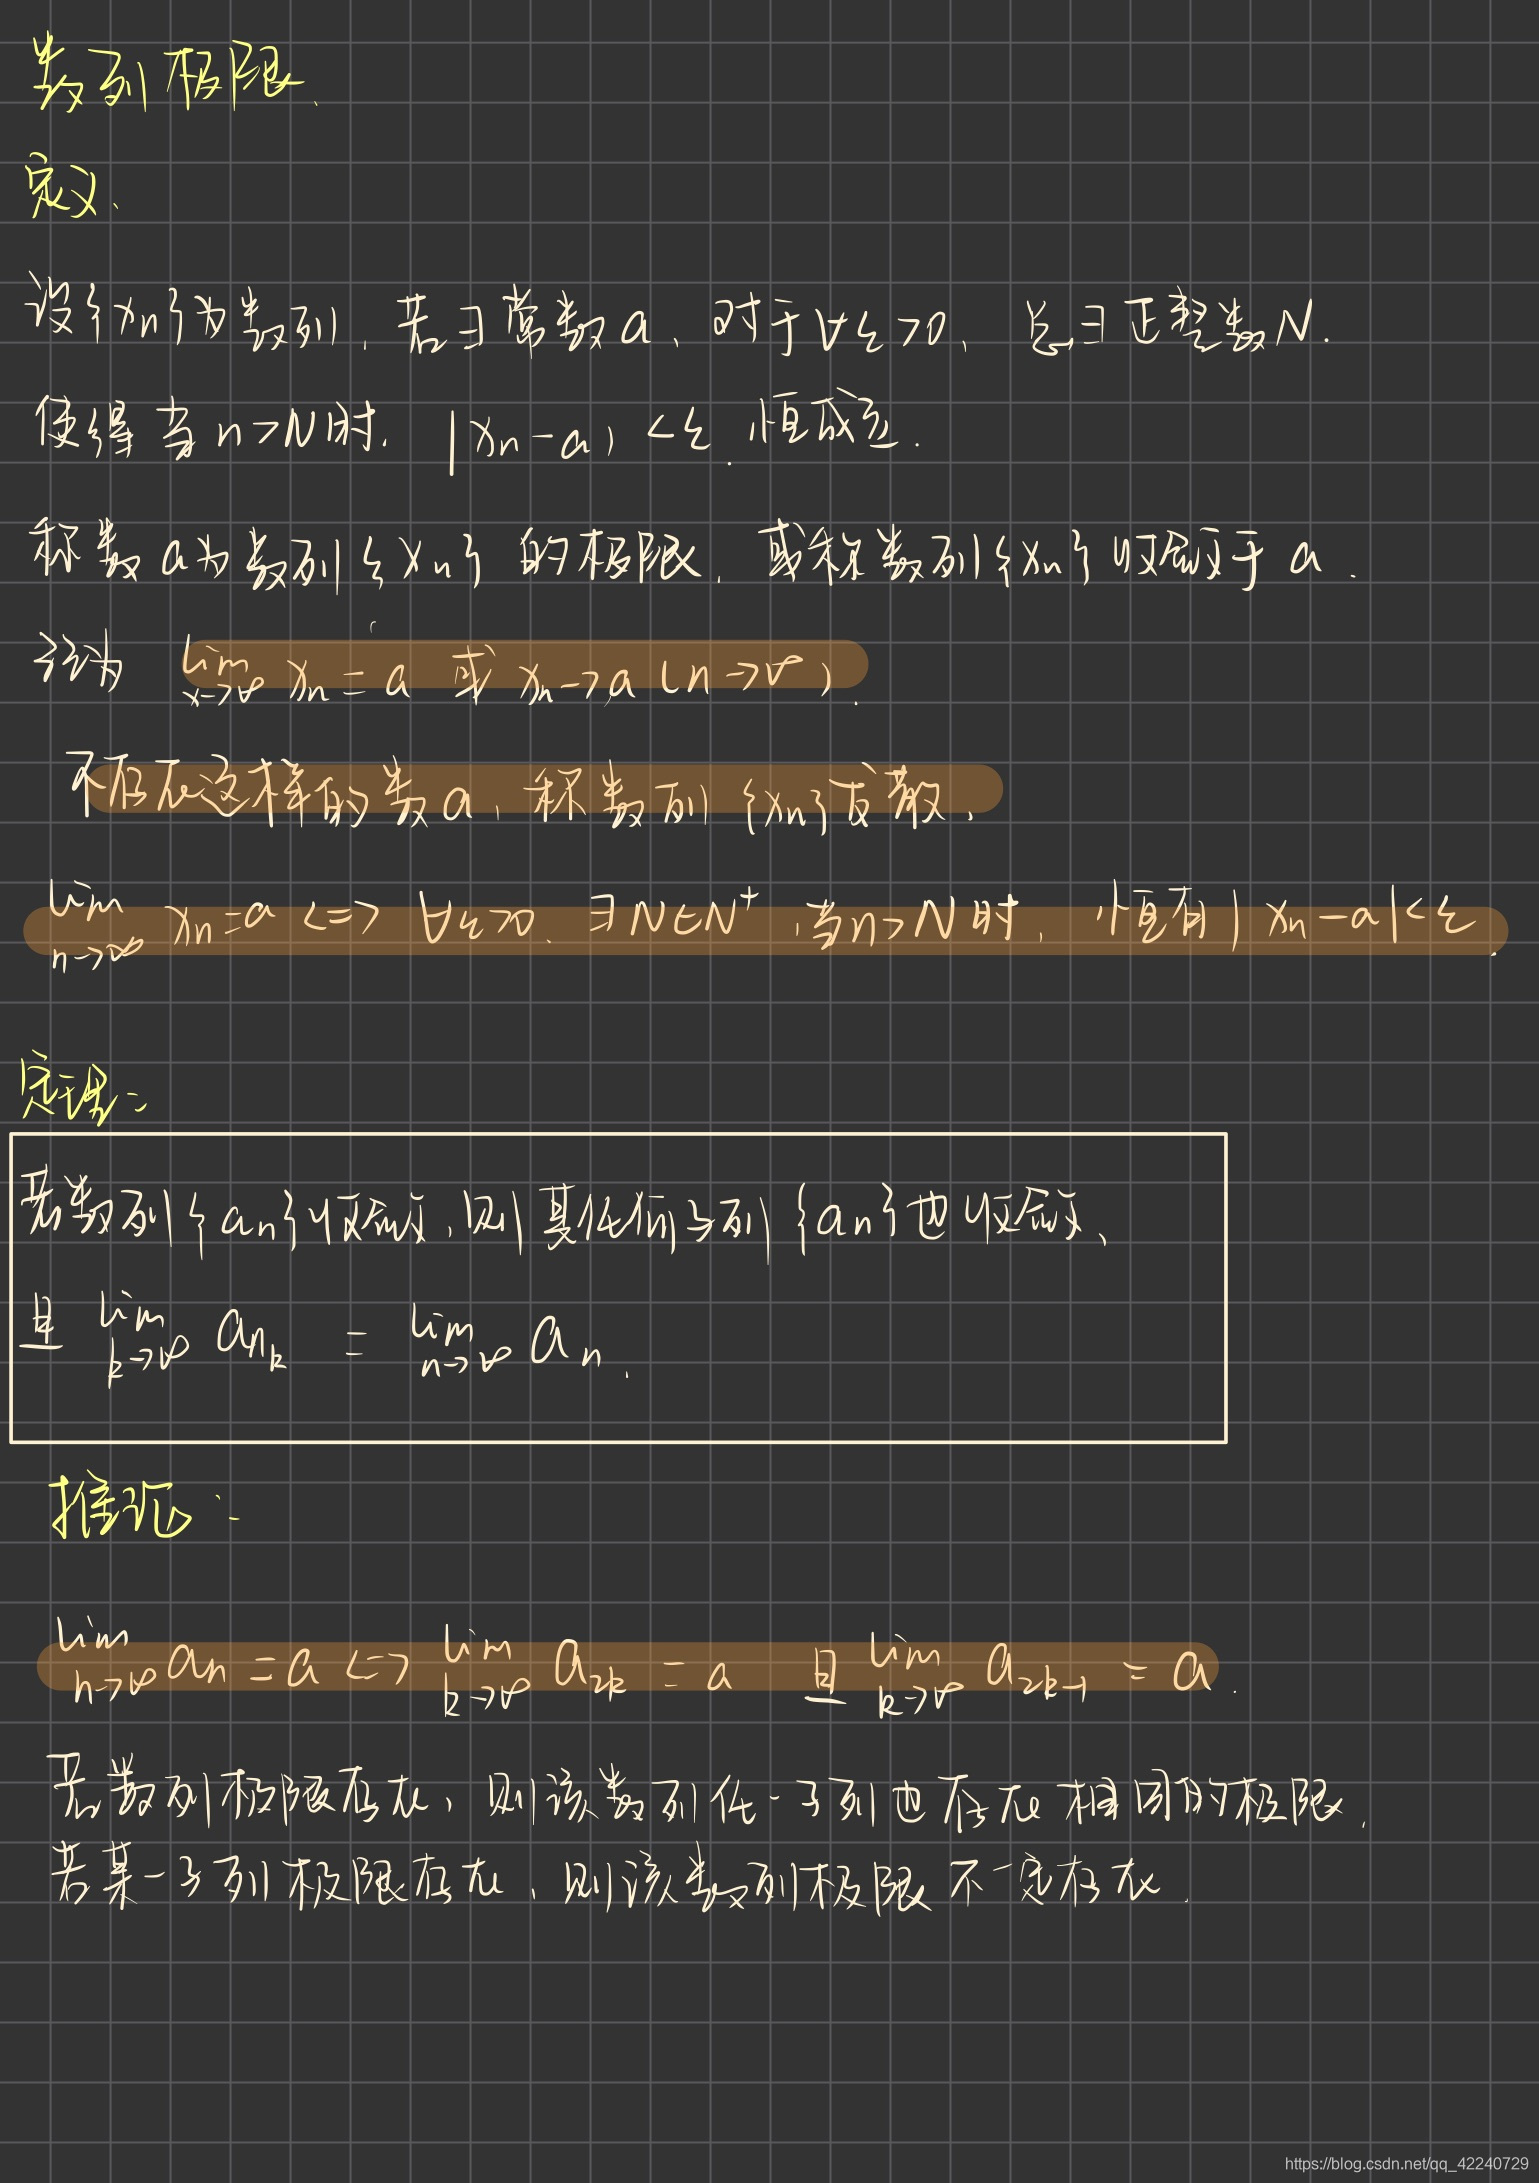 数列极限.
定义、
设{xn}为数列, 若∃常数a, 对于∀ε>0, 总∃正整数N.
使得当n>N时, |xn-a|<ε. 恒成立.
称数a为数列{xn}的极限, 或称数列{xn}收敛于a.
记为 lim x→∞ xn=a 或 xn→a (n→∞).
不存在这样的数a, 称数列{xn}发散.
lim n→∞ xn=a <=> ∀ε>0. ∃N∈N⁺, 当n>N时, 恒有|xn-a|<ε.
定理:
若数列{an}收敛, 则其任何子列{an}也收敛、
且 lim k→∞ ank = lim n→∞ an.
推论:
lim n→∞ an=a <=> lim k→∞ a2k=a 且 lim k→∞ a2k-1=a.
若数列极限存在, 则该数列任一子列也存在相同的极限.
若某一子列极限存在, 则该数列极限不一定存在.
https://blog.csdn.net/qq_42240729